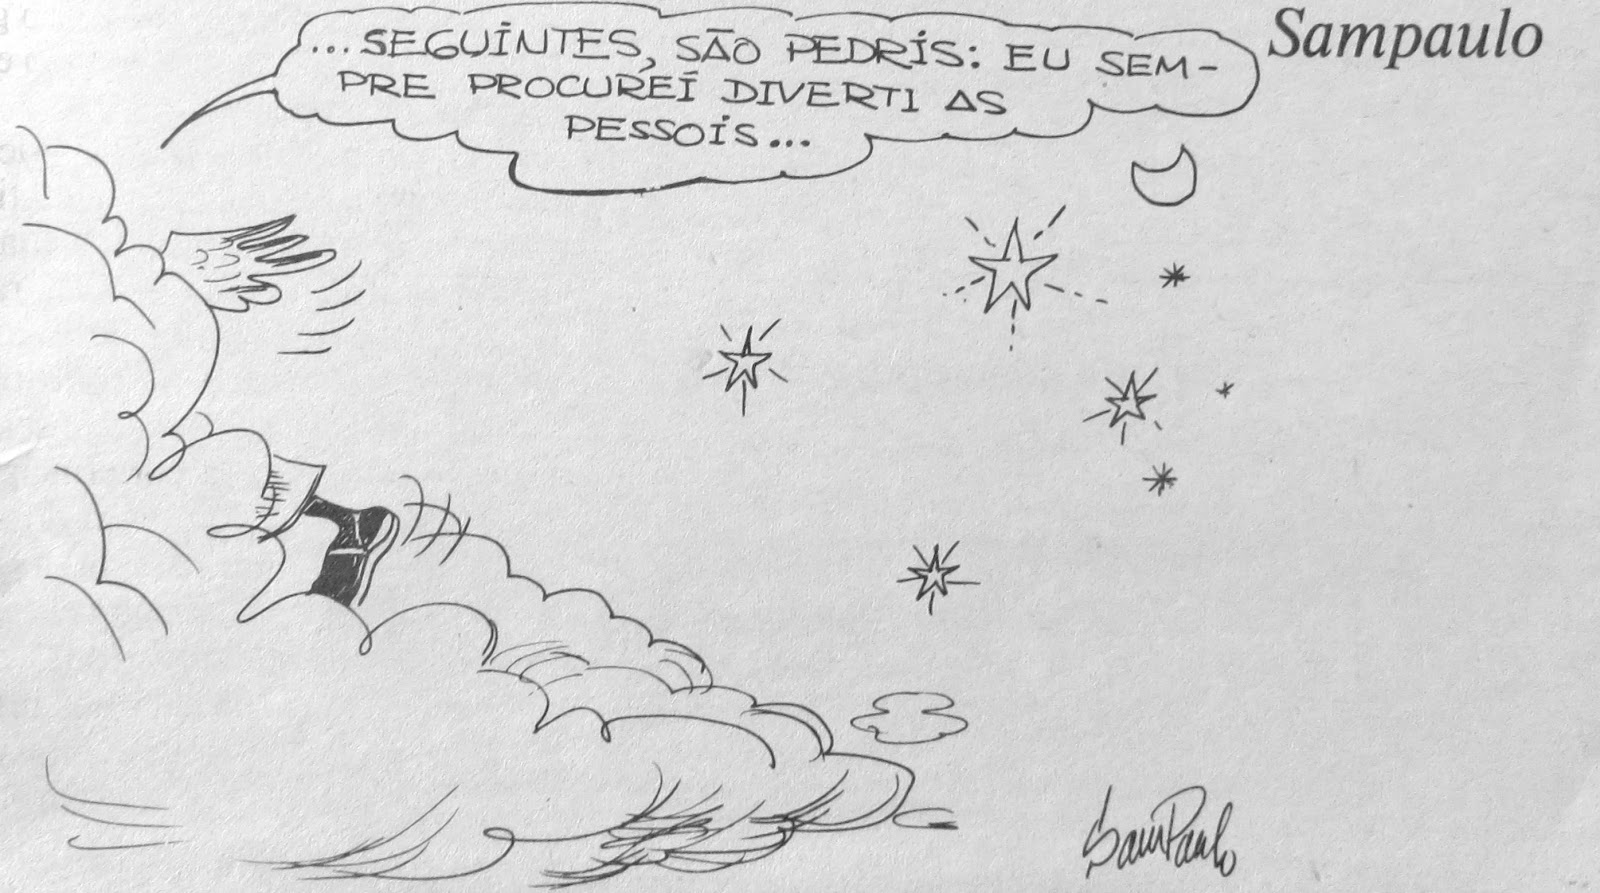 Sampaulo
...SEGUINTES, SÃO PEDRIS: EU SEM-
PRE PROCUREI DIVERTI AS
PESSOIS...
SamPaulo